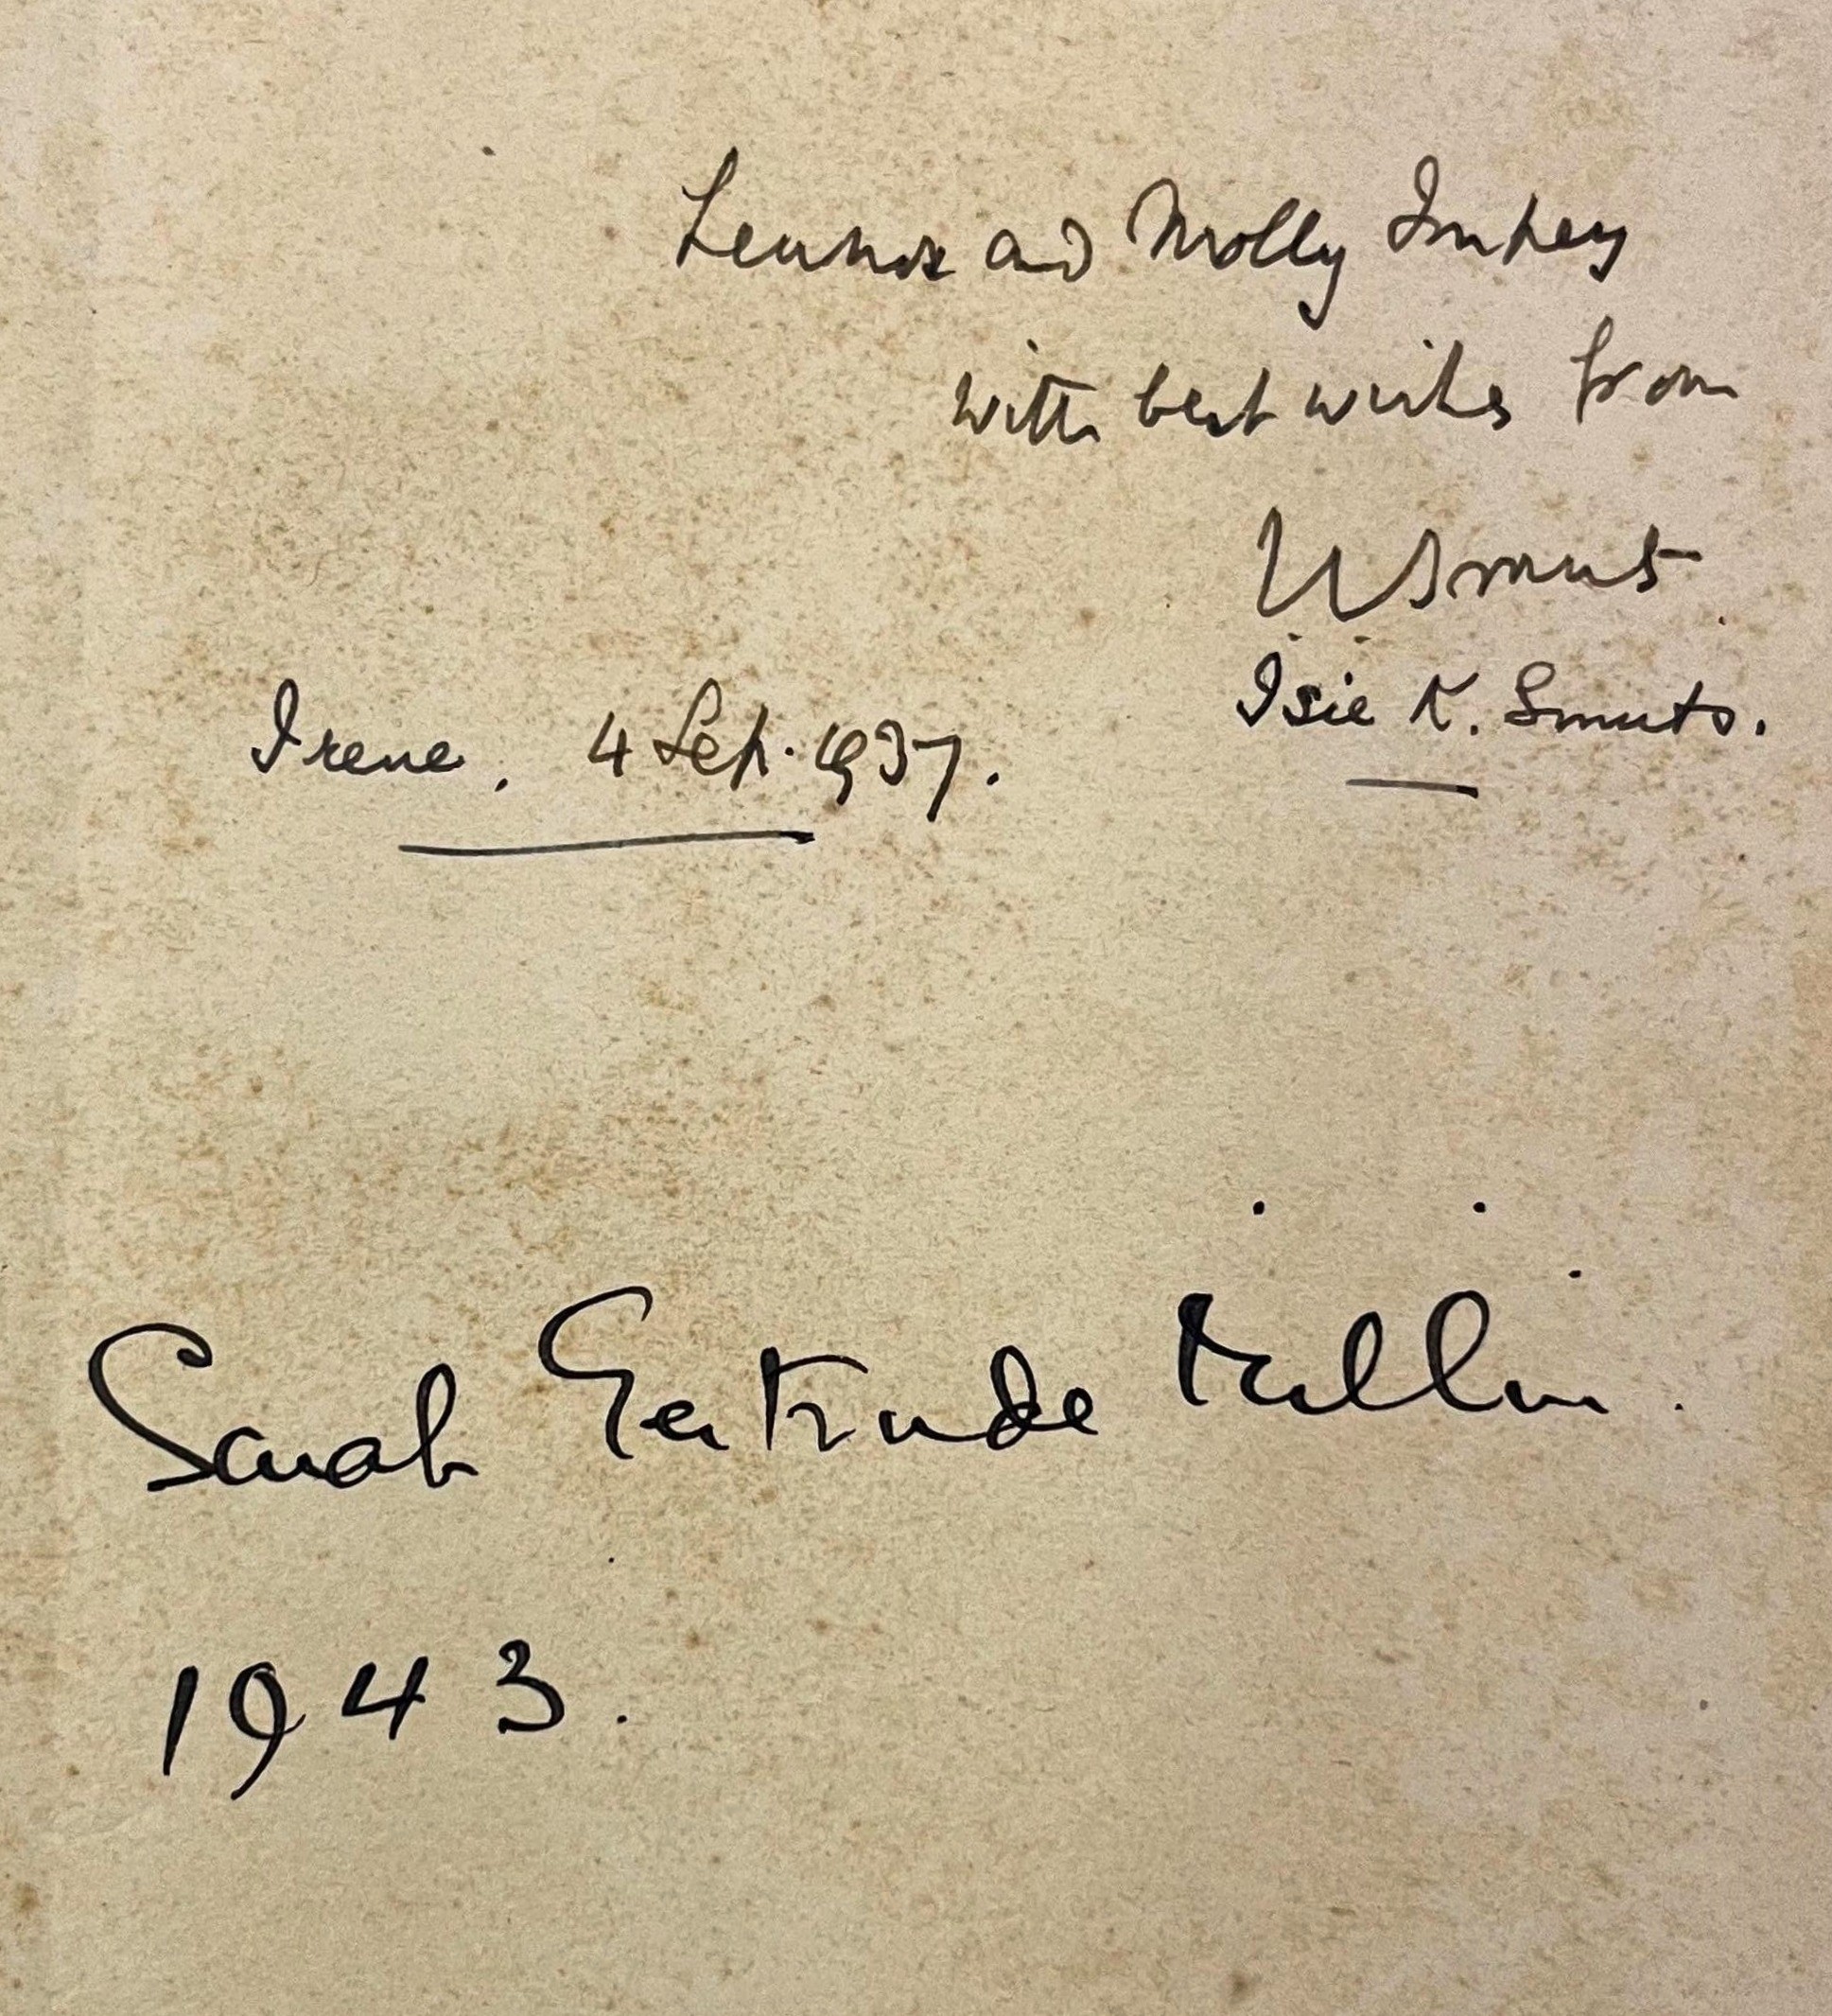 Lennox and Molly Impey
with best wishes from
JCSmuts
Isie K. Smuts.
Irene. 4 Sep. 1937.
Sarah Gertrude Millin.
1943.